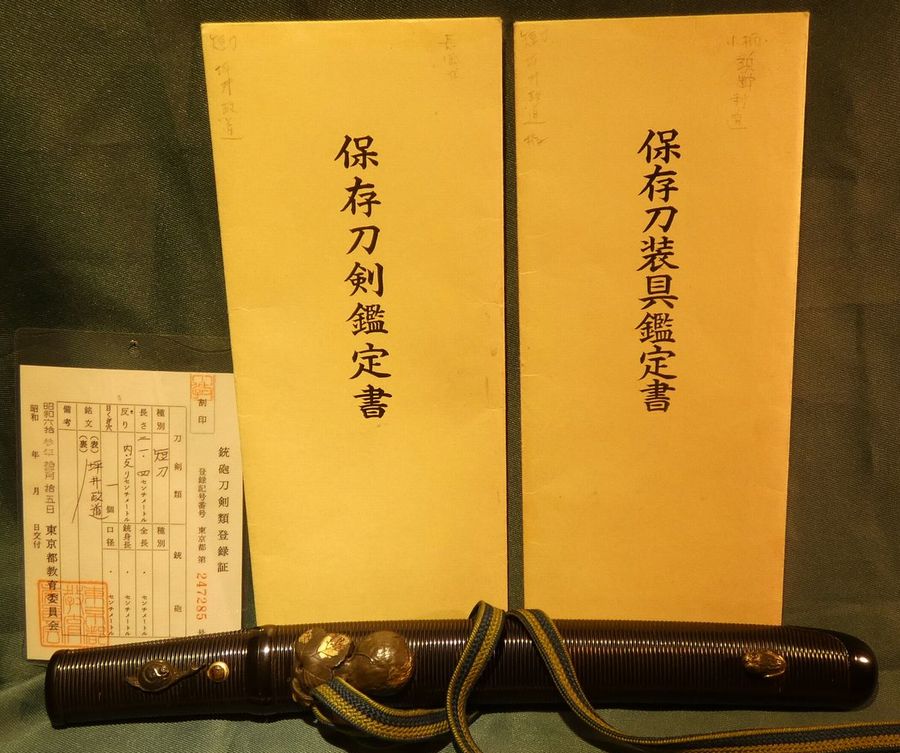 保存刀装具鑑定書
小柄
短刀
坪井政道
保存刀剣鑑定書
短刀
坪井政道
銃砲刀剣類登録証
登録記号番号 東京都 第 247285
割印
刀剣類
銃砲
種別 短刀
種別
長さ 二一・四 センチメートル
全長 ・ センチメートル
反り 内反り センチメートル
銃身長 ・ センチメートル
一個
口径 ・ センチメートル
銘文 (表) 坪井政道
(裏)
備考
昭和六拾参年拾月拾五日
東京都教育委員会
昭和 年 月 日交付